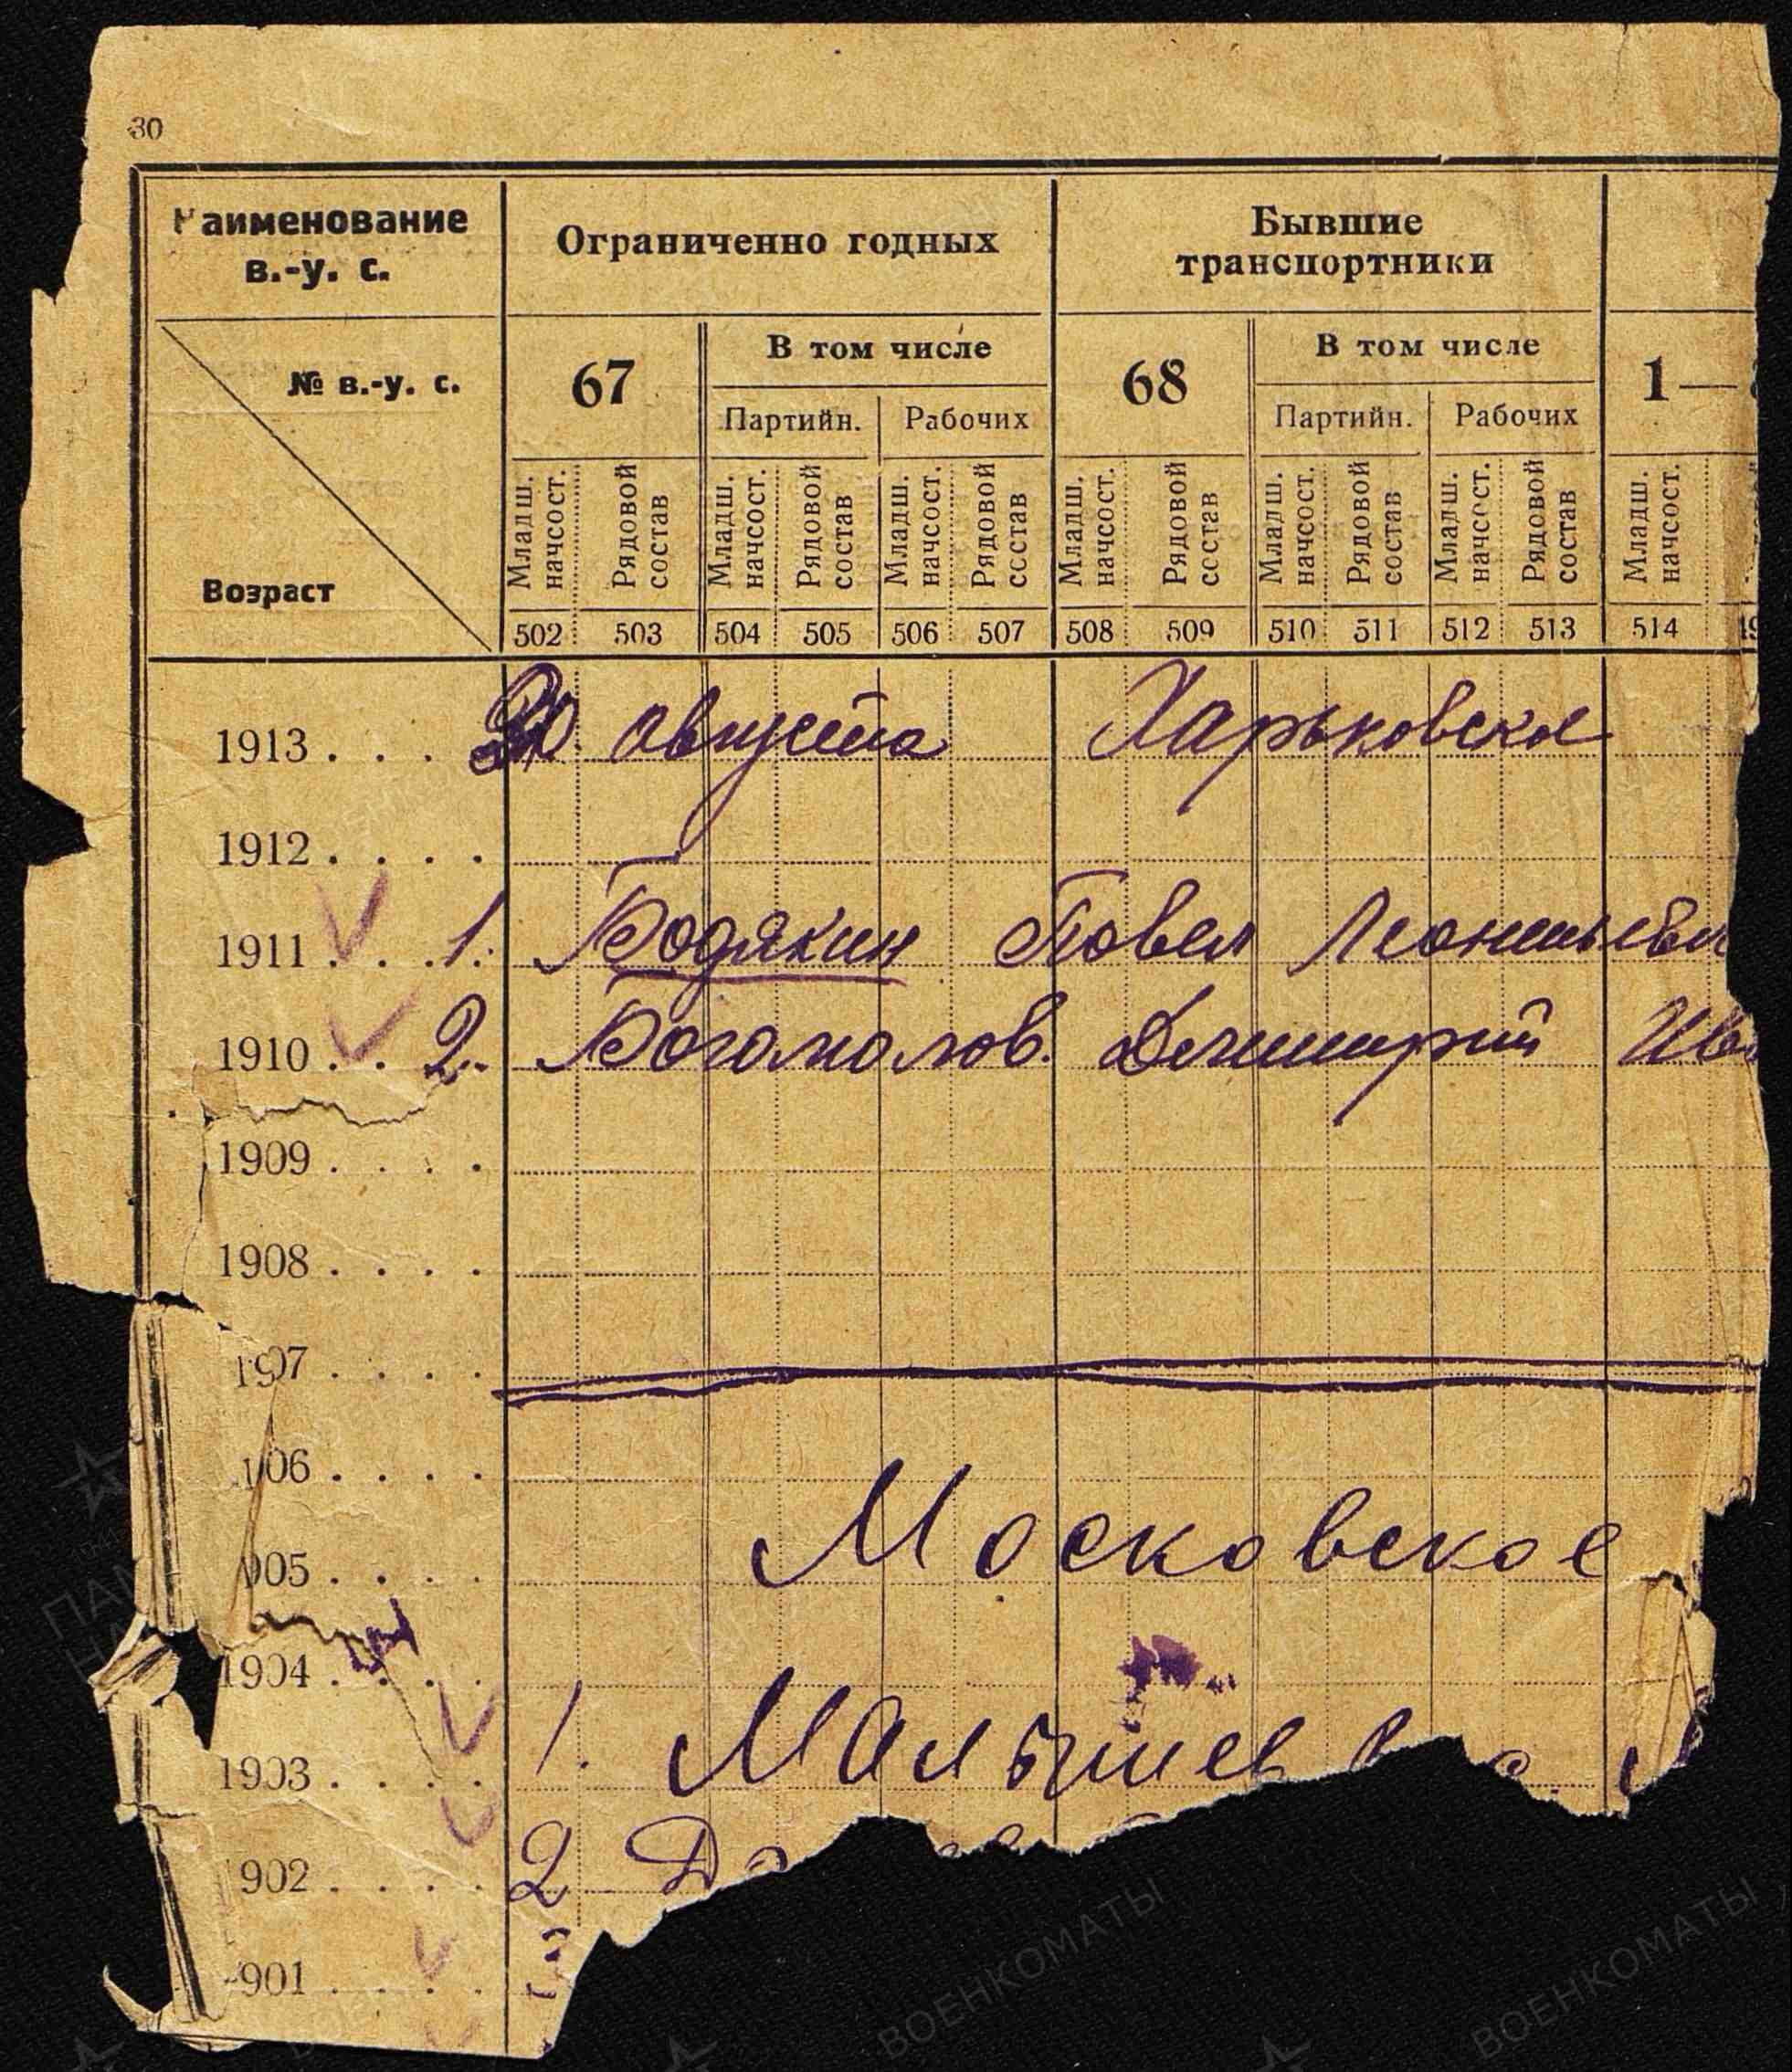 30
Наименование
в.-у. с.
Ограниченно годных
Бывшие
транспортники
№ в.-у. с.
67
В том числе
68
В том числе
1—
Партийн. Рабочих
Партийн. Рабочих
Возраст
Младш. начсост. Рядовой состав Младш. начсост. Рядовой состав Младш. начсост. Рядовой состав Младш. начсост. Рядовой состав Младш. начсост. Рядовой состав Младш. начсост. Рядовой состав Младш. начсост.
502 503 504 505 506 507 508 509 510 511 512 513 514
1913 . . . августа Харьковское
1912 . . . .
1911 . . . 1. Бодякин Павел Леонтьеви
1910 . . 2. Богомолов. Дмитрий Ив
1909 . . . .
1908 . . . .
1907 . . . .
1906 . . . .
Московское
905 . . . .
1904 . . . .
1903 . . . . 1. Малышев
902 . . . . 2
901 . . . .
ВОЕНКОМАТЫ
ВОЕНКОМАТЫ